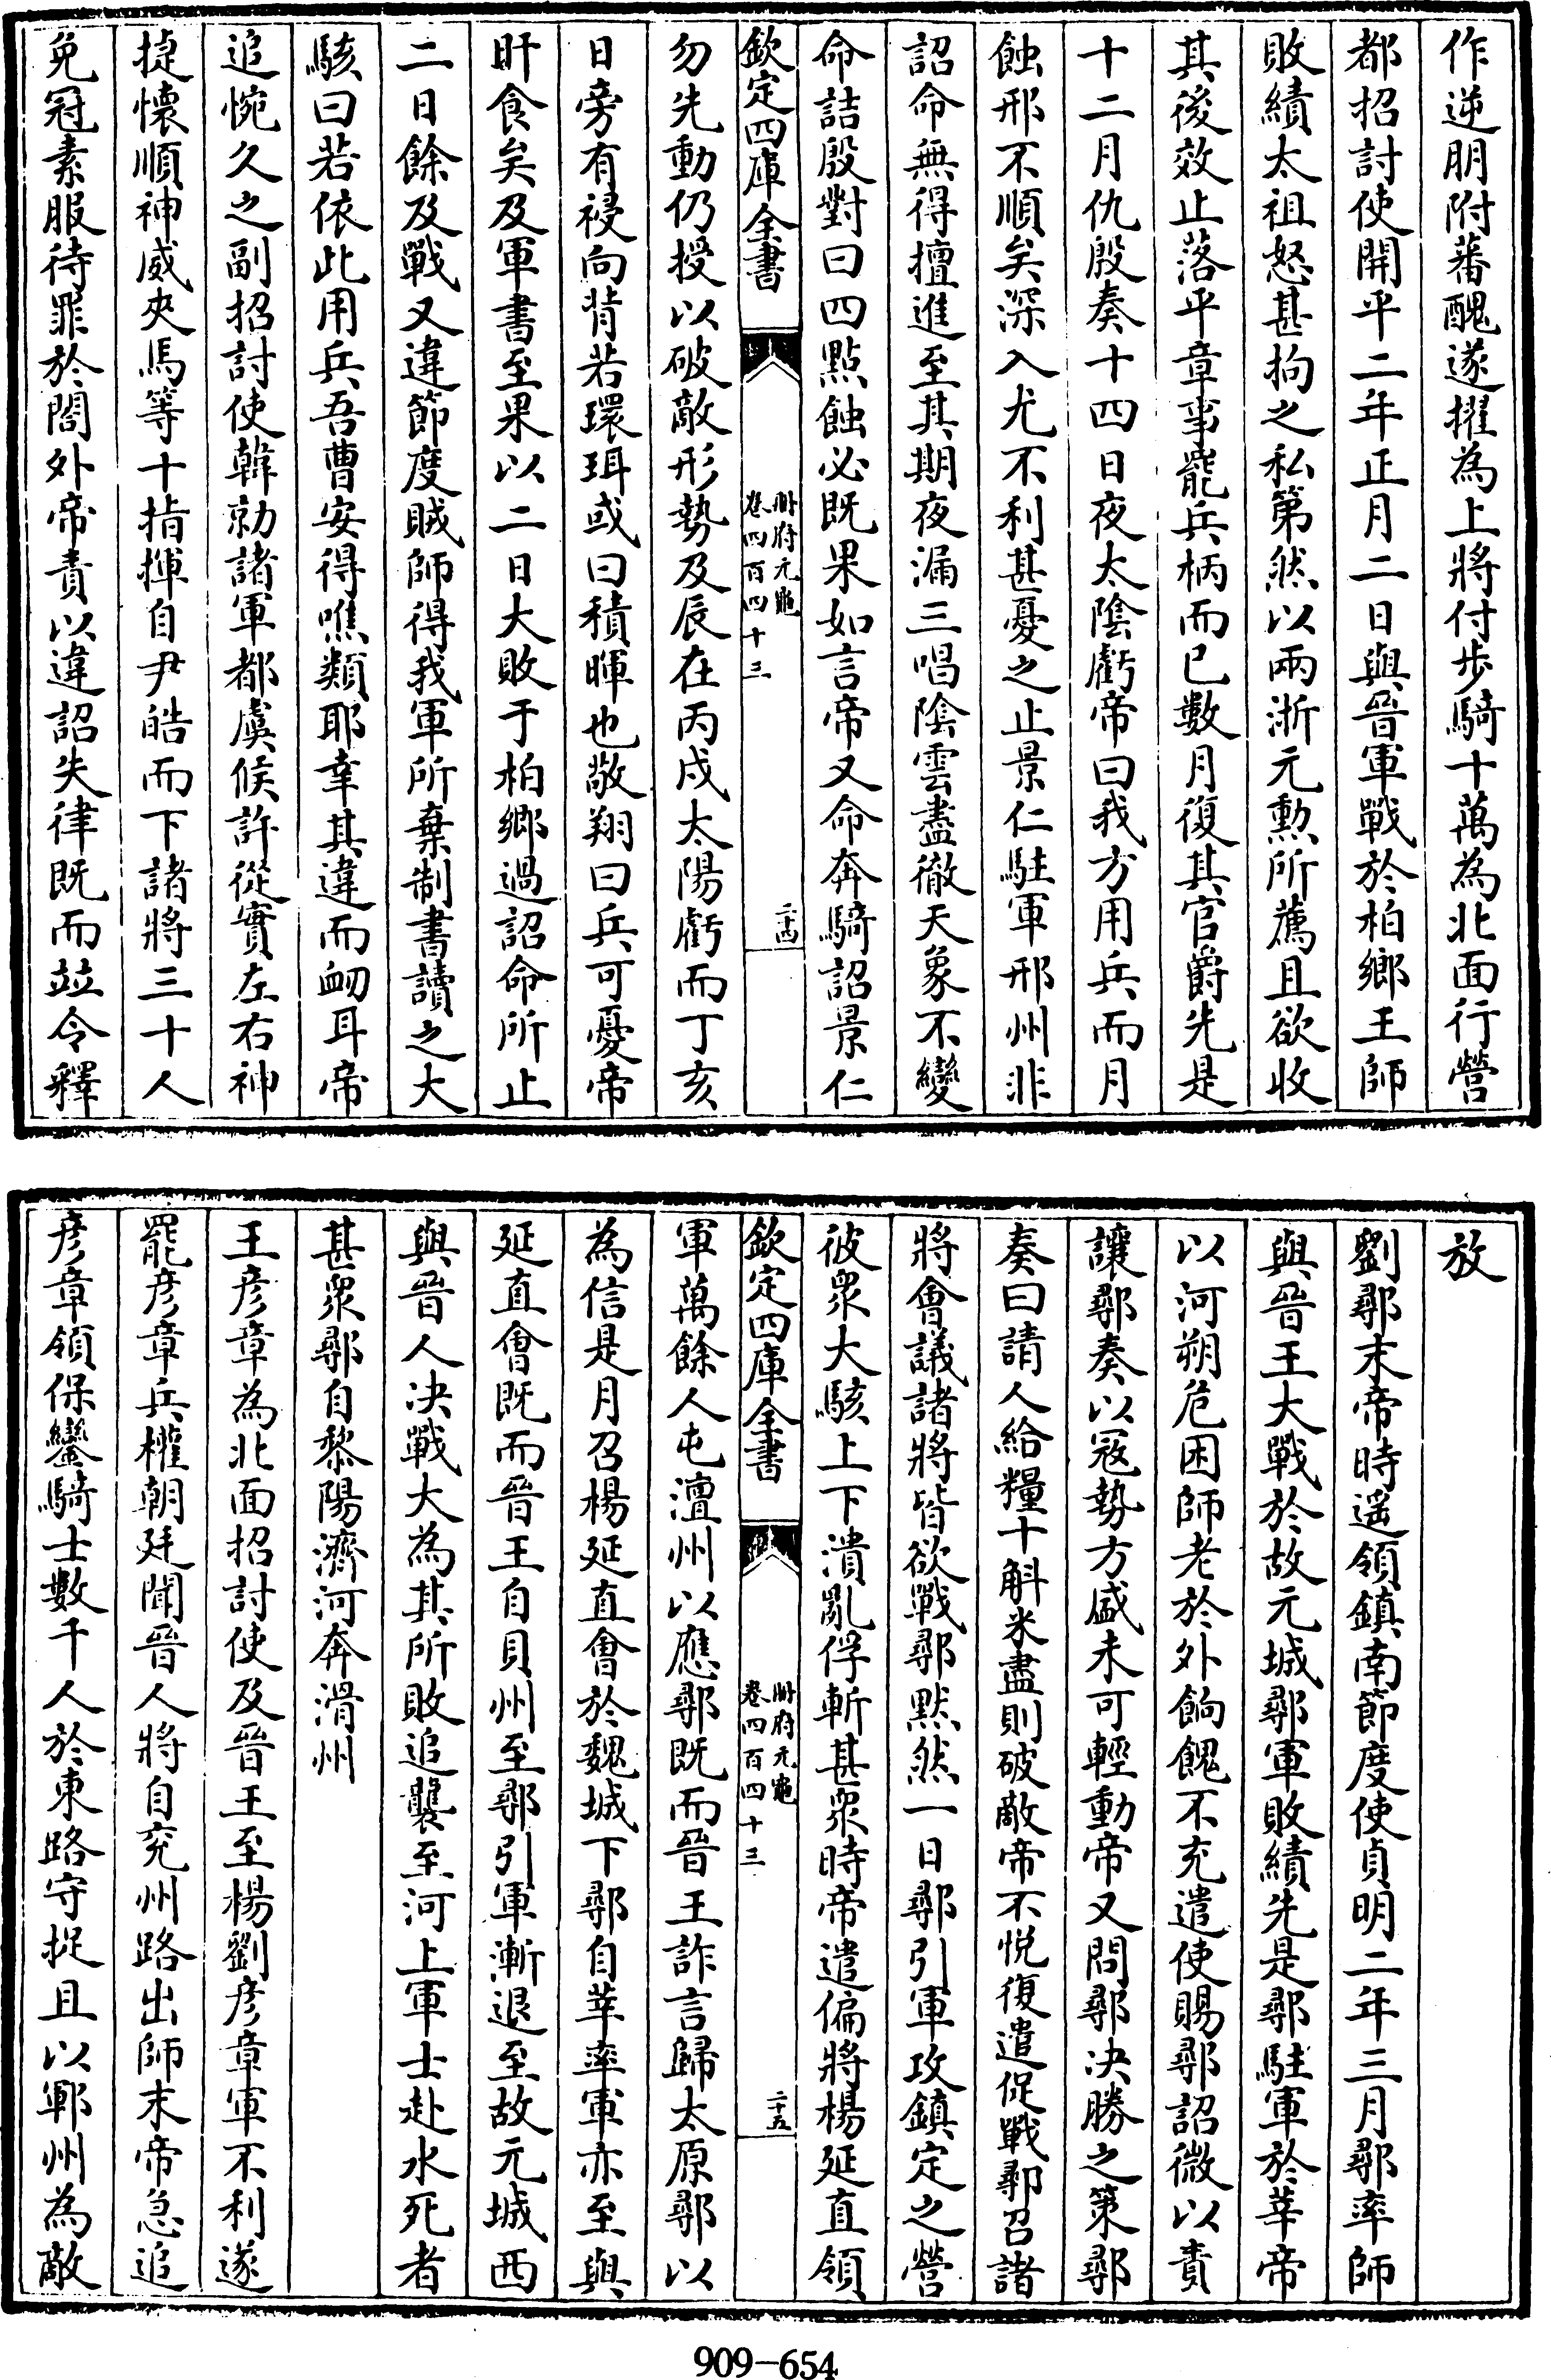 作逆朋附蕃醜遂擢為上將付步騎十萬為北面行營
都招討使開平二年正月二日與晉軍戰於柏鄉王師
敗績太祖怒甚拘之私第然以兩浙元勲所薦且欲收
其後效止落平章事罷兵柄而已數月復其官爵先是
十二月仇殷奏十四日夜太陰虧帝曰我方用兵而月
蝕邢不順矣深入尤不利甚憂之止景仁駐軍邢州非
詔命無得擅進至其期夜漏三唱陰雲盡徹天象不變
命詰殷對曰四點蝕必既果如言帝又命奔騎詔景仁
欽定四庫全書
冊府元龜
卷四百四十三
二十四
勿先動仍授以破敵形勢及辰在丙戌太陽虧而丁亥
日旁有祲向背若環珥或曰積暉也敬翔曰兵可憂帝
旰食矣及軍書至果以二日大敗于柏鄉過詔命所止
二日餘及戰又違節度賊師得我軍所棄制書讀之大
駭曰若依此用兵吾曹安得噍類耶幸其違而衂耳帝
追惋久之副招討使韓勍諸軍都虞候許從實左右神
捷懷順神威夾馬等十指揮自尹皓而下諸將三十人
免冠素服待罪於閤外帝責以違詔失律既而竝令釋
放
劉鄩末帝時遥領鎮南節度使貞明二年三月鄩率師
與晉王大戰於故元城鄩軍敗績先是鄩駐軍於莘帝
以河朔危困師老於外餉餽不充遣使賜鄩詔微以責
讓鄩奏以寇勢方盛未可輕動帝又問鄩决勝之策鄩
奏曰請人給糧十斛米盡則破敵帝不悦復遣促戰鄩召諸
將會議諸將皆欲戰鄩默然一日鄩引軍攻鎮定之營
彼衆大駭上下潰亂俘斬甚衆時帝遣偏將楊延直領
欽定四庫全書
冊府元龜
卷四百四十三
二十五
軍萬餘人屯澶州以應鄩既而晉王詐言歸太原鄩以
為信是月召楊延直會於魏城下鄩自莘率軍亦至與
延直會既而晉王自貝州至鄩引軍漸退至故元城西
與晉人决戰大為其所敗追襲至河上軍士赴水死者
甚衆鄩自黎陽濟河奔滑州
王彦章為北面招討使及晉王至楊劉彦章軍不利遂
罷彦章兵權朝廷聞晉人將自兖州路出師末帝急追
彦章領保鑾騎士數千人於東路守捉且以鄆州為敵
909-654